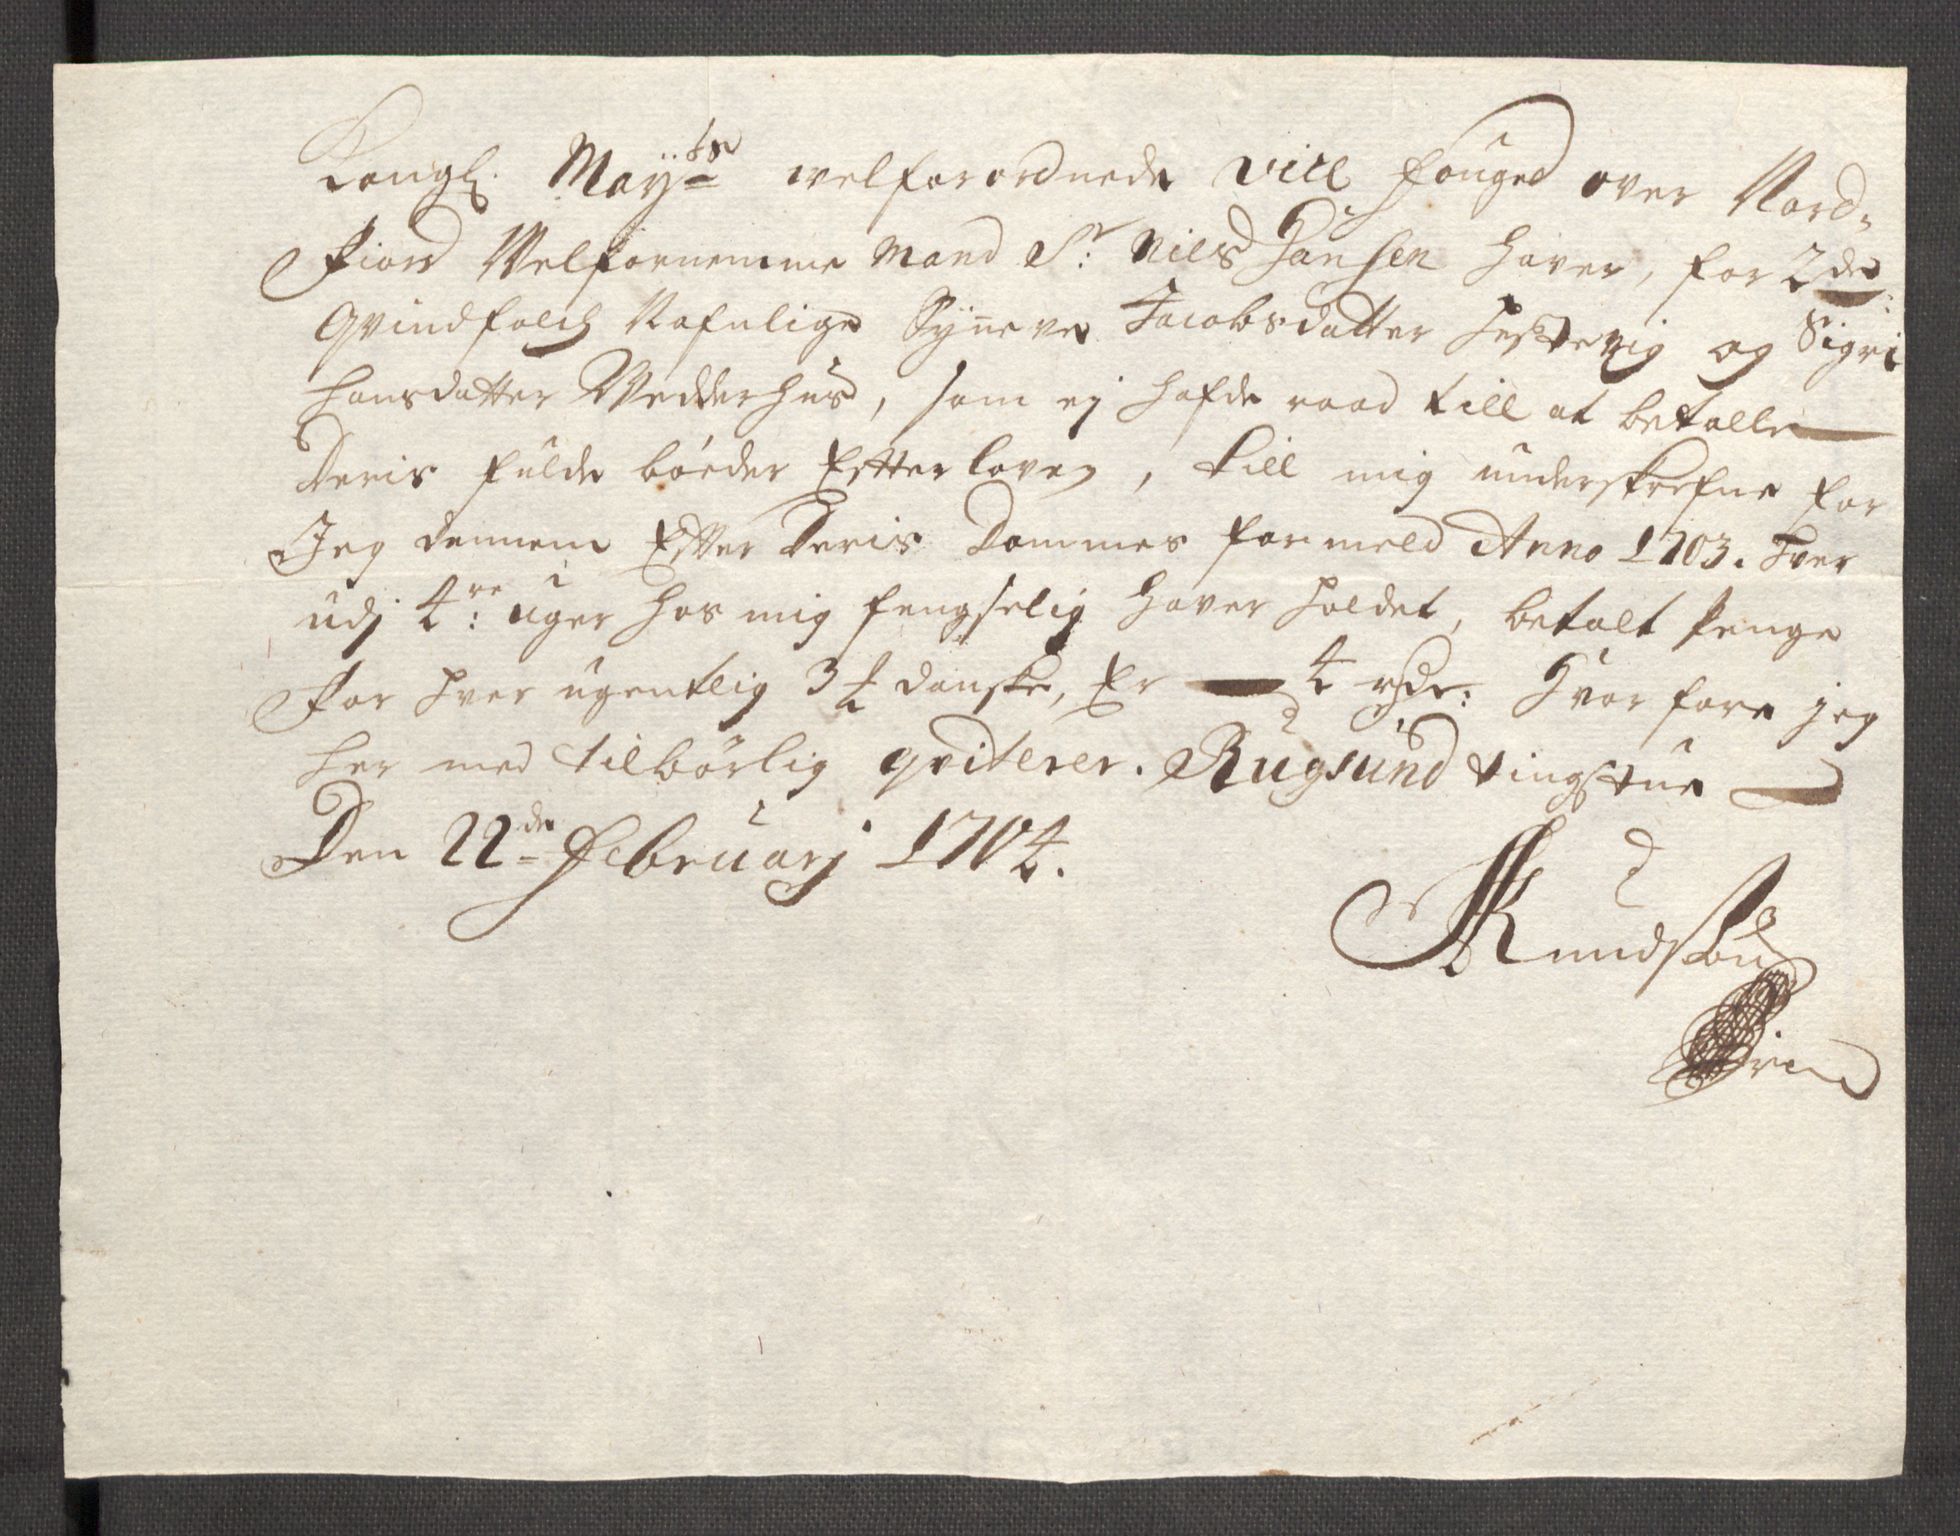 Kongl. Mayts welforordnede Vice fouged over Nord-
fiord Welfornemme Mand Sr: Niels Hansen Haver, for 2de
Qvindfolch Nafnlige Syneve Jacobsdatter Hestevig og Sigri
Hansdatter Vedderhus, som ej hafde raad till at betalle
Deris fulde böeder Efter loven, till mig underskrefne for
Jeg dennem Efter Deris Dommes formeld Anno 1703. hver
udj 4re: uger hos mig fengselig haver holdet, betalt Penge
for hver ugentlig 3 ¥ danske, Er 4 rdr: Hvorfore jeg
her med tilbörlig qviterer. Rugsund tingstue
Den 22de Februarj 1704.
Knudsön